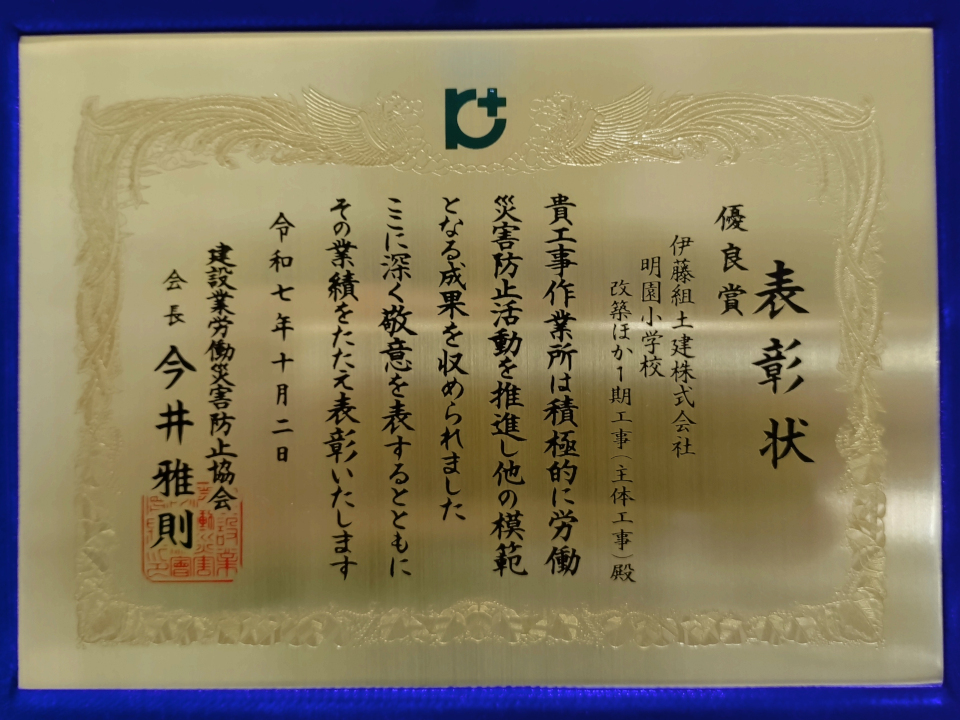 表彰状
優良賞
伊藤組土建株式会社
明園小学校
改築ほか1期工事(主体工事)殿
貴工事作業所は積極的に労働
災害防止活動を推進し他の模範
となる成果を収められました
ここに深く敬意を表するとともに
その業績をたたえ表彰いたします
令和七年十月二日
建設業労働災害防止協会
会長 今井雅則